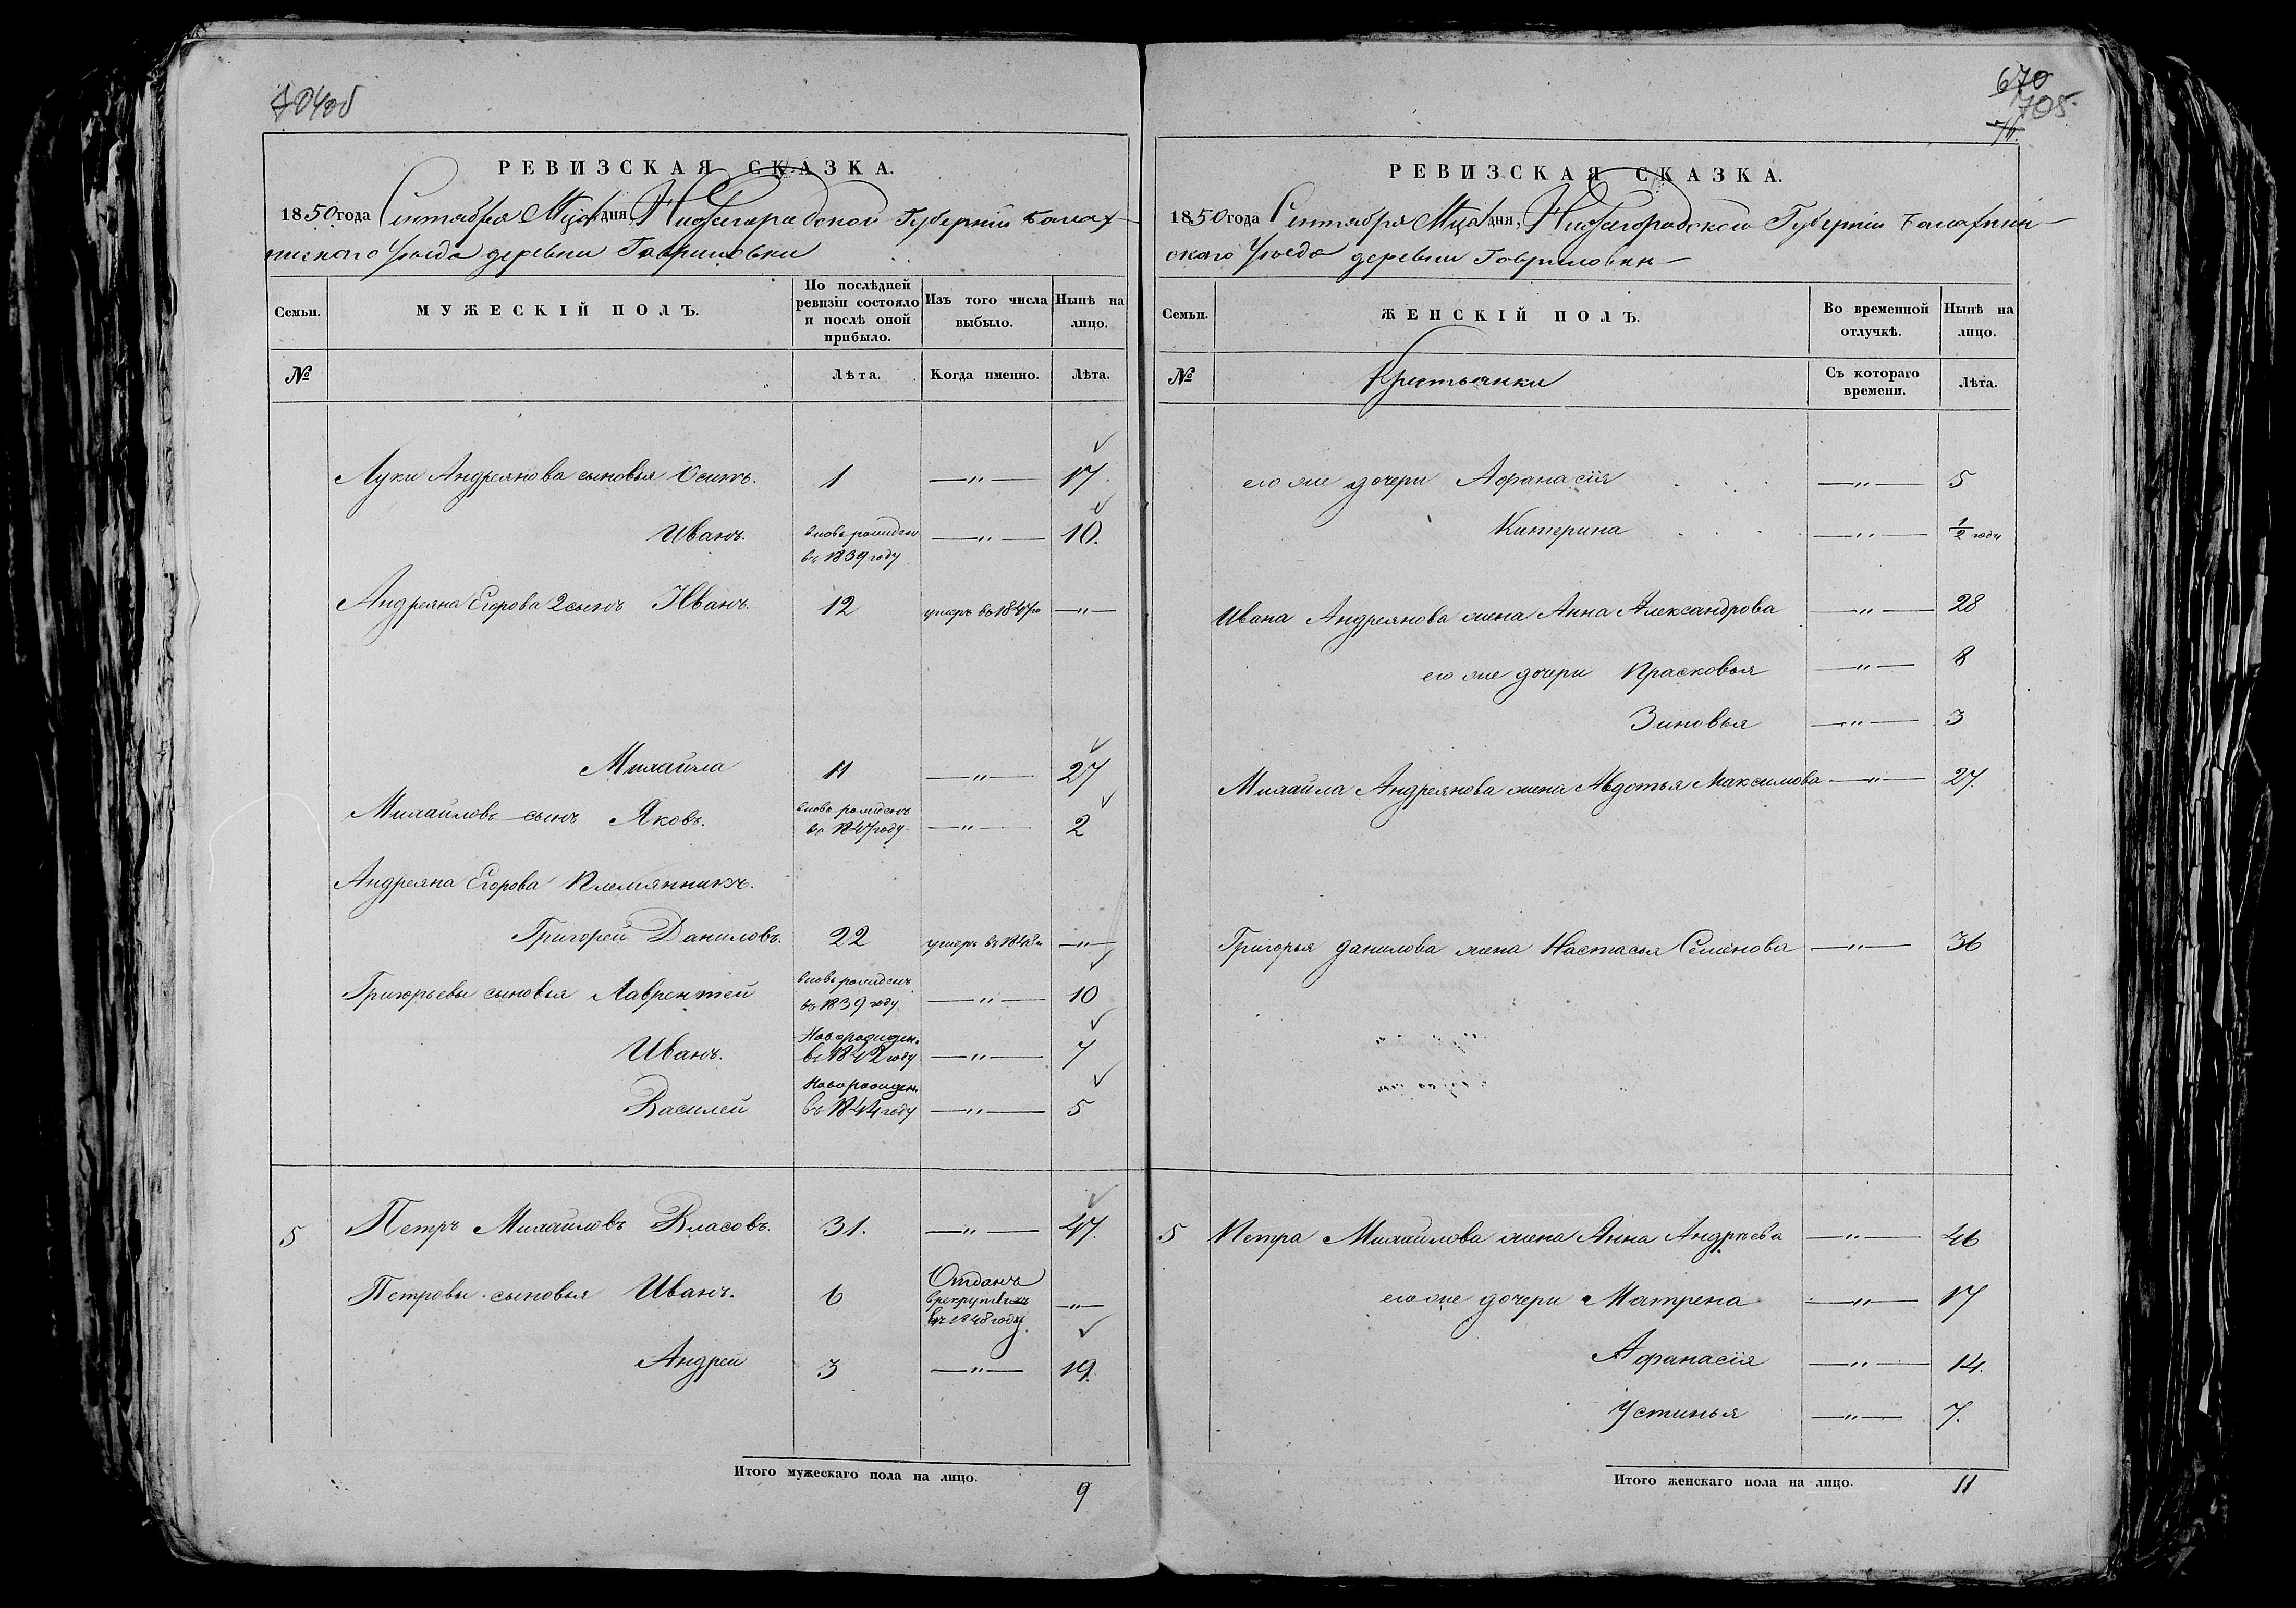 704об
РЕВИЗСКАЯ СКАЗКА.
1850 года Сентября Мца дня, Нижегородской Губерніи Балах-
нинскаго Уѣзда деревни Гавриловки
Семьи.
МУЖЕСКІЙ ПОЛЪ.
По послѣдней
ревизіи состояло
и послѣ оной
прибыло.
Изъ того числа
выбыло.
Нынѣ на
лицо.
№
Лѣта.
Когда именно.
Лѣта.
Луки Андреянова сыновья Осипъ. 1 —"— 17.
Иванъ. вновь рожден —"— 10.
въ 1839 году
Андреяна Егорова 2 сынъ Иванъ 12 умеръ въ 1847 го —"—
Михайла 11 —"— 27
Михайловъ сынъ Яковъ. вновь рожденъ
въ 1847 году —"— 2
Андреяна Егорова Племянникъ.
Григорей Даниловъ. 22 умеръ въ 1848 —"—
Григорьевы сыновья Лаврентей вновь рожденъ
въ 1839 году. —"— 10
Иванъ. Новорожден.
въ 1842 году —"— 7
Василей Новорожден.
въ 1844 году —"— 5
5 Петръ Михайловъ Власовъ. 31. —"— 47.
Петровы сыновья Иванъ. 6 Отданъ
в рекруты
въ 1848 году. —"—
Андрей 3 —"— 19.
Итого мужескаго пола на лицо.
9
670
705.
РЕВИЗСКАЯ СКАЗКА.
1850 года Сентября Мца дня, Нижегородской Губерніи Балахнин-
скаго Уѣзда деревни Гавриловки
Семьи.
ЖЕНСКІЙ ПОЛЪ.
Во временной
отлучкѣ.
Нынѣ на
лицо.
№
Крестьянки
Съ котораго
времени.
Лѣта.
его же дочери Афанасія —"— 5
Катерина —"— 1/2 году
Ивана Андреянова жена Анна Александрова —"— 28
его же дочери Прасковья —"— 8
Зиновья —"— 3
Михайла Андреянова жена Авдотья Максимова —"— 27.
Григорья Данилова жена Настасья Семенова —"— 36
5 Петра Михайлова жена Анна Андреева —"— 46
его же дочери Матрена —"— 17
Афанасія —"— 14.
Устинья —"— 7.
Итого женскаго пола на лицо.
11